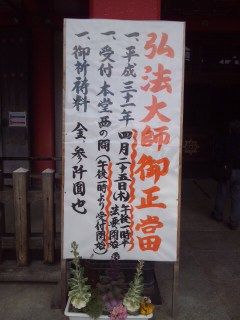 弘法大師御正當
一、平成三十一年四月二十五日(木)午後一時半法要開始
一、受付 本堂西の間(午後一時より受付開始)
一、御祈祷料 金参阡圓也